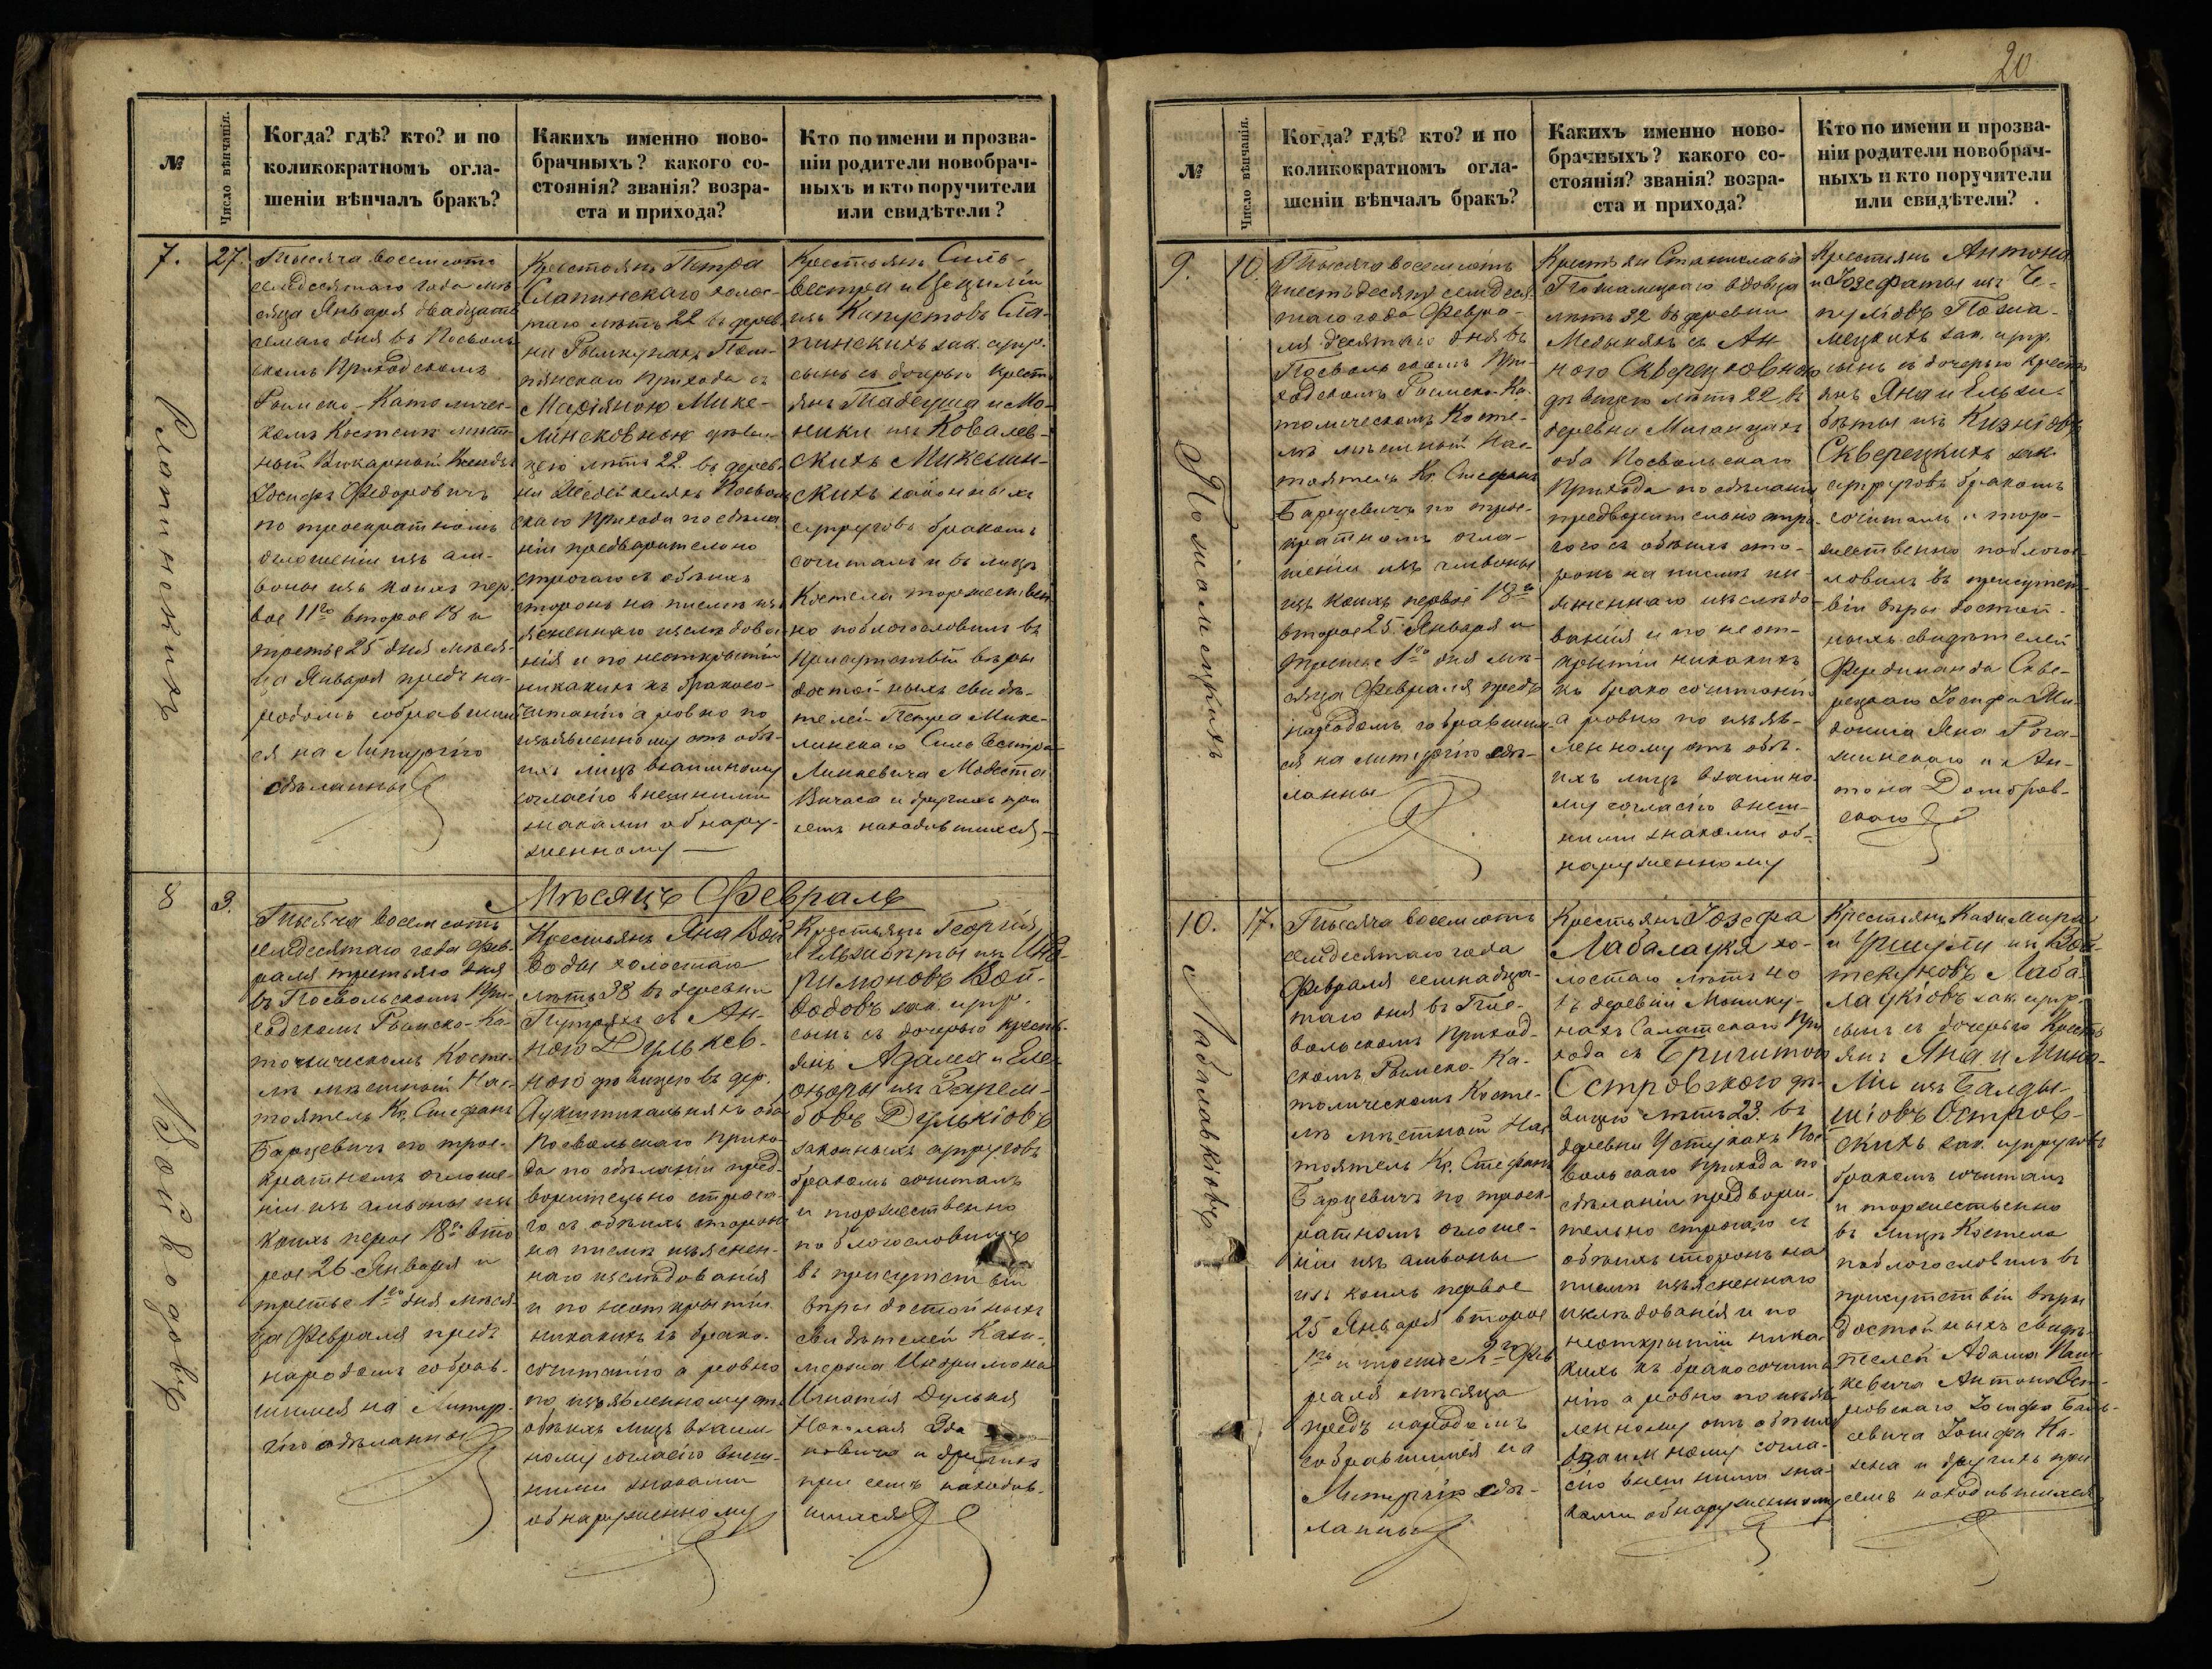 №
Число вѣнчанія.
Когда? гдѣ? кто? и по
коликократномъ огла-
шеніи вѣнчалъ бракъ?
Какихъ именно ново-
брачныхъ? какого со-
стоянія? званія? возра-
ста и прихода?
Кто по имени и прозва-
ніи родители новобрач-
ныхъ и кто поручители
или свидѣтели?
7.
27.
Тысяча восемсотъ
семдесятаго года мѣ-
сяца Января двадцать
семаго дня въ Посволь-
скомъ Приходскомъ
Римско-Католичес-
комъ Костелѣ мѣст-
ный Викарный Ксендзъ
Іосифъ Федоровичъ
по троекратномъ
оглошеніи изъ ам-
воны изъ коихъ пер-
вое 11го второе 18 и
третье 25 дня мѣся-
ца Января предъ на-
родомъ собравшим-
ся на Литургію
сдѣланны
Крестьянъ Петра
Слапинскаго холос-
таго лѣтъ 22 въ дерев-
ни
Прихода съ
Маріяною Мике-
линсковною дѣви-
цею лѣтъ 22 въ дерев-
ни Посволь-
скаго Прихода по сдѣла-
ніи предварительно
строгаго съ обѣихъ
сторонъ на писмѣ изъ-
ясненнаго изслѣдова-
нія и по неоткрытіи
никакихъ къ бракосо-
читанію а ровно по
изъявленному отъ обѣ-
ихъ лицъ взаимному
согласію внешними
знаками обнару-
женному
Крестьянъ Силь-
вестра и Цецыліи
изъ Капустовъ Сла-
пинскихъ зак. супр.
сынъ съ дочерью крест-
янъ Тадеуша и Мо-
ники изъ Ковалев-
скихъ Микелин-
скихъ законныхъ
супруговъ бракомъ
сочиталъ и въ лицѣ
Костела торжествен-
но поблогословилъ въ
присутствіи вѣры
достойныхъ свидѣ-
телей Петра Мике-
линскаго Сильвестра
Линкевича Модеста
и другихъ при
семъ находившихся
Слапинскихъ
Мѣсяцъ Февраль
8
3.
Тысяча восемсотъ
семдесятаго года Фев-
раля третьяго дня
въ Посвольскомъ При-
ходскомъ Римско-Ка-
толическомъ Косте-
лѣ мѣстный Нас-
тоятель Кс. Стефанъ
Барцевичъ по трое-
кратномъ оглоше-
ніи изъ амвоны изъ
коихъ первое 18го вто
рое 26 Января и
третье 1го дня мѣся-
ца Февраля предъ
народомъ собрав-
шимся на Литур-
гію сдѣланны
Крестьянъ Яна Вой
воды холостаго
лѣтъ 38 въ деревни
съ Ан-
ною Дулькев-
ною дѣвицею въ дер.
оба
Посвольскаго прихо-
да по сдѣланіи пред-
ворительно строга-
го съ обѣихъ сторонъ
на писмѣ изъяснен-
наго изслѣдованія
и по неоткрытіи
никакихъ къ брако-
сочитанію а ровно
по изъявленному отъ
обѣихъ лицъ взаим
ному согласію внеш-
ними знаками
обнаруженному
Крестьянъ Георгія
и Ельжбѣты изъ Инд-
римоновъ Вой-
водовъ зак. супр.
сынъ съ дочерью кресть-
янъ Адама и Еле-
оноры изъ Зарем-
бовъ Дулькіовъ
законныхъ супруговъ
бракомъ сочиталъ
и торжественно
поблогословилъ
въ присутствіи
вѣры достойныхъ
свидѣтелей Кази-
мержа Индримона
Игнатія Дулькя
и другихъ
при семъ находив-
шихся
Войводовъ
20
№
Число вѣнчанія.
Когда? гдѣ? кто? и по
коликократномъ огла-
шеніи вѣнчалъ бракъ?
Какихъ именно ново-
брачныхъ? какого со-
стоянія? званія? возра-
ста и прихода?
Кто по имени и прозва-
ніи родители новобрач-
ныхъ и кто поручители
или свидѣтели?
9.
10.
Тысяча восемсотъ
шестьдесятъ семдеся-
таго года Февра-
ля десятаго дня въ
Посвольскомъ При-
ходскомъ Римско-Ка-
толическомъ Косте-
лѣ мѣстный Нас-
тоятель Кс. Стефанъ
Барцевичъ по трое-
кратномъ огла-
шеніи изъ амвоны
изъ коихъ первое 18го
второе 25 Января и
третье 1го дня мѣ-
сяца Февраля предъ
народомъ собравшим-
ся на литургію сдѣ-
ланны
Крестьянъ Станислава
вдовца
лѣтъ 32 въ деревни
съ Ан
ною Скверецковною
дѣвицею лѣтъ 22 въ
деревни
оба Посвольскаго
Прихода по сдѣланіи
предворительно стро-
гаго съ обѣихъ сто-
ронъ на писмѣ изъ-
ясненнаго изслѣдо-
ванія и по неот-
крытіи никакихъ
къ бракосочитанію
а ровно по изъяв-
ленному отъ обѣ-
ихъ лицъ взаимно
му согласію внеш-
ними знаками об-
наруженному
Крестьянъ Антона
и Іозефаты изъ Че-
пуліовъ
зак. супр.
сынъ съ дочерью кресть
янъ Яна и Ельжи-
бѣты изъ Кизніовъ
Скверецкихъ зак.
супруговъ бракомъ
сочиталъ и тор-
жественно поблого-
ловилъ въ присутст-
віи вѣры достой-
ныхъ свидѣтелей
Фердинанда Скве-
рецкаго Іосифа
Яна Рога-
линскаго и Ан-
тона Домбров-
скаго
10.
17.
Тысяча восемсотъ
семдесятаго года
Февраля семнадца-
таго дня въ Пос-
вольскомъ Приход-
скомъ Римско-Ка-
толическомъ Косте-
лѣ мѣстный Нас
тоятель Кс. Стефанъ
Барцевичъ по троек-
ратномъ оглоше-
ніи изъ амвоны
изъ коихъ первое
25 Января второе
1го и третье 2го Фев
раля мѣсяца
предъ народомъ
собравшимся на
Литургію сдѣ-
ланны
Крестьянъ Іозефа
Лабалаукя хо-
лостаго лѣтъ 40
въ деревни Монику-
нахъ Салатскаго При
хода съ Бригитою
Островскою дѣ-
вицею лѣтъ 23 въ
деревни Устукахъ Пос
вольскаго Прихода по
сдѣланіи предвори-
тельно строгаго съ
обѣихъ сторонъ на
писмѣ изъясненнаго
изслѣдованія и по
неоткрытіи ника-
кихъ къ бракосочита
нію а ровно по изъяв
ленному отъ обѣихъ
взаимному согла-
сію внешними зна-
ками обнаруженному
Крестьянъ Казимира
и Уршули изъ Вой-
текуновъ Лаба-
лаукіовъ зак. супр.
сынъ съ дочерью Кресть
янъ Яна и
изъ Балды-
шіовъ Островс-
кихъ зак. супруговъ
бракомъ сочиталъ
и торжественно
въ лицѣ Костела
поблогословилъ въ
присутствіи вѣры
достойныхъ свидѣ-
телей Адама
Антона Ост-
ровскаго Іосифа
Іосифа
и другихъ при
семъ находившихся
Лаблавкіовъ